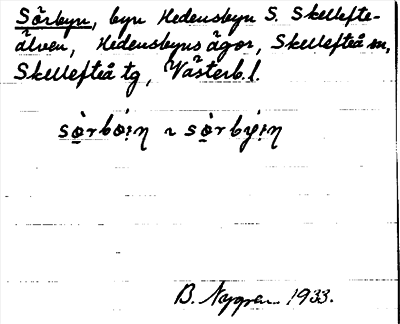 Sörbyn, byn Hedensbyn S. Skellefte-
älven, Hedensbyns ägor, Skellefteå sn,
Skellefteå tg, Västerb. l.
B. Nygren 1933.